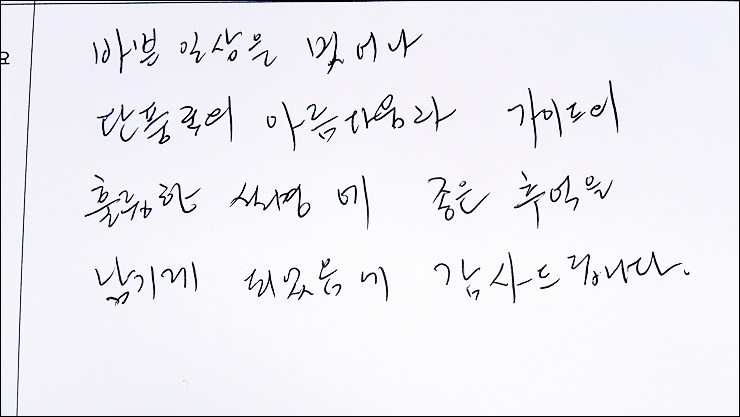 요
바쁜 일상을 벗어나
단풍의 아름다움과 가이드의
훌륭한 설명에 좋은 추억을
남기게 되었음에 감사드립니다.